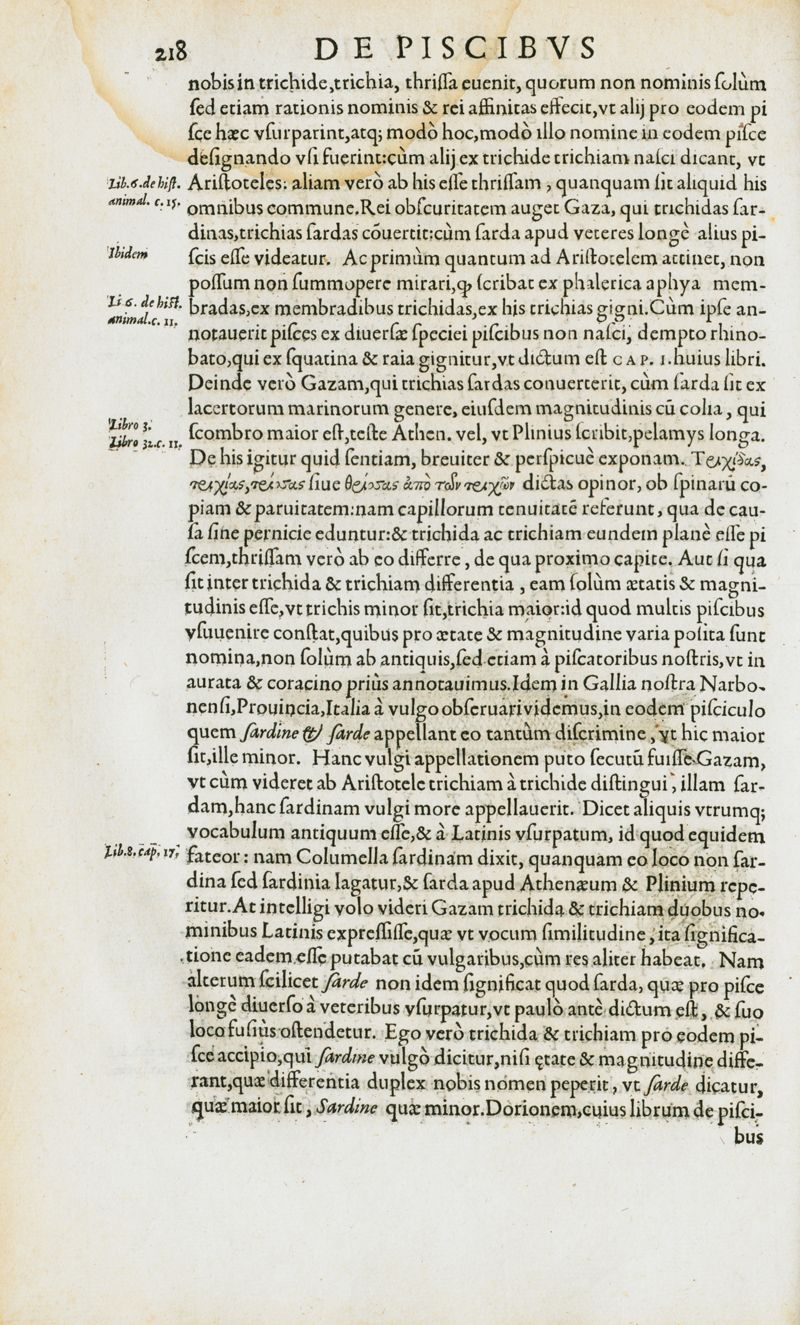 218 DE PISCIBVS
nobis in trichide,trichia, thriſſa euenit, quorum non nominis ſolùm
ſed etiam rationis nominis & rei affinitas effecit,vt alij pro eodem pi
ſce hæc vſurparint,atq; modò hoc,modò illo nomine in eodem piſce
deſignando vſi fuerint:cùm alij ex trichide trichiam naſci dicant, vt
Lib.6.de hiſt. Ariſtoteles: aliam verò ab his eſſe thriſſam , quanquam ſit aliquid his
animal. c.15. omnibus commune.Rei obſcuritatem auget Gaza, qui trichidas ſar-
dinas,trichias ſardas cõuertit:cùm ſarda apud veteres longè alius pi-
Ibidem ſcis eſſe videatur. Ac primùm quantum ad Ariſtotelem attinet, non
poſſum non ſummopere mirari,ꝙ ſcribat ex phalerica aphya mem-
Li 6. de hiſt. bradas,ex membradibus trichidas,ex his trichias gigni.Cùm ipſe an-
animal.c. 11. notauerit piſces ex diuerſæ ſpeciei piſcibus non naſci, dempto rhino-
bato,qui ex ſquatina & raia gignitur,vt dictum eſt CAP. 1.huius libri.
Deinde verò Gazam,qui trichias ſardas conuerterit, cùm ſarda ſit ex
lacertorum marinorum genere, eiuſdem magnitudinis cũ colia , qui
Libro 3. ſcombro maior eſt,teſte Athen. vel, vt Plinius ſcribit,pelamys longa.
Libro 32.c. 11. De his igitur quid ſentiam, breuiter & perſpicuè exponam. Τριχίδας,
τριχίας,τρίσσας ſiue θρίσσας ἀπὸ τῶν τριχῶν dictas opinor, ob ſpinarũ co-
piam & paruitatem:nam capillorum tenuitatẽ referunt, qua de cau-
ſa ſine pernicie eduntur:& trichida ac trichiam eundem planè eſſe pi
ſcem,thriſſam verò ab eo differre , de qua proximo capite. Aut ſi qua
ſit inter trichida & trichiam differentia , eam ſolùm ætatis & magni-
tudinis eſſe,vt trichis minor ſit,trichia maior:id quod multis piſcibus
vſuuenire conſtat,quibus pro ætate & magnitudine varia poſita ſunt
nomina,non ſolùm ab antiquis,ſed etiam à piſcatoribus noſtris,vt in
aurata & coracino priùs annotauimus.Idem in Gallia noſtra Narbo-
nenſi,Prouincia,Italia à vulgo obſeruari videmus,in eodem piſciculo
quem ſardine & ſarde appellant eo tantùm diſcrimine , vt hic maior
ſit,ille minor. Hanc vulgi appellationem puto ſecutũ fuiſſe Gazam,
vt cùm videret ab Ariſtotele trichiam à trichide diſtingui , illam ſar-
dam,hanc ſardinam vulgi more appellauerit. Dicet aliquis vtrumq;
vocabulum antiquum eſſe,& à Latinis vſurpatum, id quod equidem
Lib.8.cap. 17. fateor : nam Columella ſardinam dixit, quanquam eo loco non ſar-
dina ſed ſardinia lagatur,& ſarda apud Athenæum & Plinium repe-
ritur.At intelligi volo videri Gazam trichida & trichiam duobus no-
minibus Latinis expreſſiſſe,quæ vt vocum ſimilitudine , ita ſignifica-
tione eadem eſſe putabat cũ vulgaribus,cùm res aliter habeat. Nam
alterum ſcilicet ſarde non idem ſignificat quod ſarda, quæ pro piſce
longè diuerſo à veteribus vſurpatur,vt paulò antè dictum eſt , & ſuo
loco fuſiùs oſtendetur. Ego verò trichida & trichiam pro eodem pi-
ſce accipio,qui ſardine vulgò dicitur,niſi ętate & magnitudine diffe-
rant,quæ differentia duplex nobis nomen peperit , vt ſarde dicatur,
quæ maior ſit , Sardine quæ minor.Dorionem,cuius librum de piſci-
bus